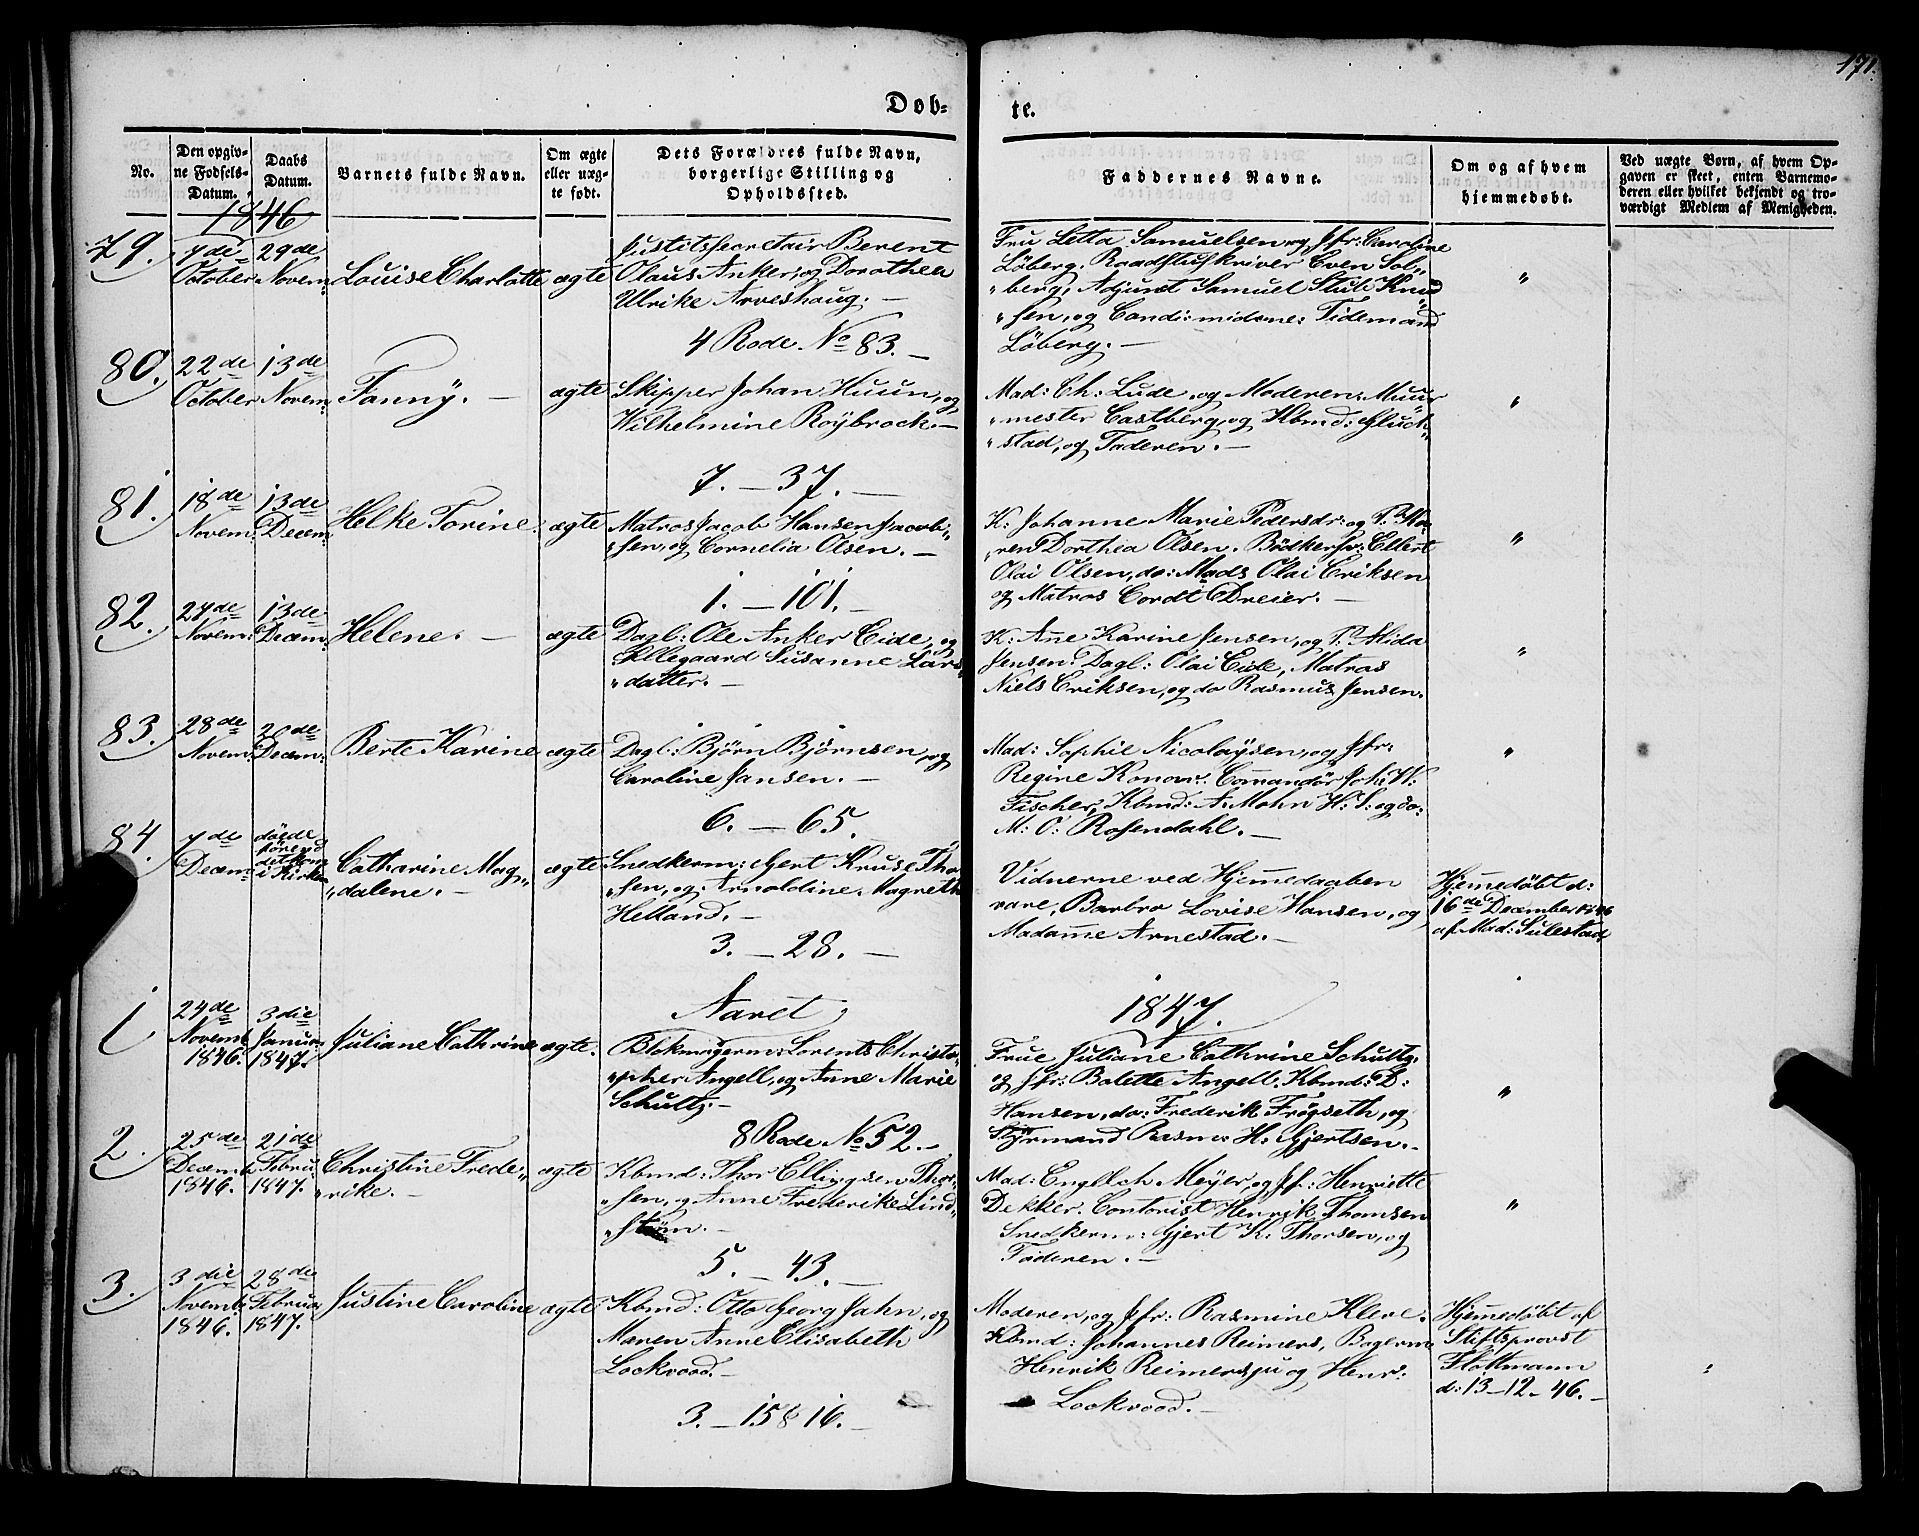 171.
Døb=
te.
No.
Den opgiv-
ne Fødsels-
Datum.
Daabs
Datum.
Barnets fulde Navn.
Om ægte
eller uæg-
te født.
Dets Forældres fulde Navn,
borgerlige Stilling og
Opholdssted.
Faddernes Navne.
Om og af hvem
hjemmedøbt.
Ved uægte Børn, af hvem Op-
gaven er skeet, enten Barnemo-
deren eller hvilket bekjendt og tro-
værdigt Medlem af Menigheden.
1846
79.
7de
October
29de
Novem:
Louise Charlotte
ægte
Justitssecretair Berent
Olaus Anker, og Dorothea
Ulrike Arveshoug. —
4 Rode No 83. —
Fru Letta Samuelsen og Jfr: Caroline
Löberg. Raadstuskriver Even Sol„
„berg, Adjunct Samuel Stub Knud
„sen, og Cand: midsne: Tidemand
Löberg. —
"
80.
22de
October
13de
Novem:
Fanny. —
ægte
Skipper Johan Huun, og
Wilhelmine Roÿbrock. —
7. — 37. —
Mad: Ch: Lude, og Moderen. Muur
„mester Castberg, og Kbmd: Gluck„
„stad, og Faderen. —
"
81.
18de
Novem:
13de
Decem:
Helke Torine.
ægte
Matros Jacob Hansen Jacob„
„sen, og Cornelia Olsen. —
1. — 101. —
K: Johanne Marie Pedersdr: og P. Ka„
„ren Dorthea Olsen. Bödkersv: Ellert
Olai Olsen, do: Mads Olai Eriksen
og Matros Cordt Dreier. —
"
82.
27de
Novem:
13de
Decem:
Helene. —
ægte
Dagl: Ole Anker Eide, og
Ellegaard Susanne Lars„
„datter. —
K: Ane Karine Jensen, og P. Alida
Jensen. Dagl: Olai Eide, Matros
Niels Eriksen, og do Rasmus Jensen.
"
83.
28de
Novem:
20de
Decem:
Berte Karine
ægte
Dagl: Björn Björnsen, og
Caroline Jansen. —
6. — 65.
Mad: Sophie Nicolaÿsen, og Jfr:
Regine Konow. Comandör Joh: H:
Fischer, Kbmd: A: Mohn H. S: og do:
M: O: Rosendahl. —
"
84.
7de
Decem:
döede
förend
det kom
i Kirken
Catharine Mag„
„dalene. —
ægte
Snedkerm: Gert Kruse Thor
„sen, og Arnoldine Magrethe
Helland. —
3. — 28. —
Vidnerne ved Hjemedaaben
vare, Barbro Lovise Hansen, og
Madame Arnestad. —
Hjemedöbt d:
16de December 1846
af Mad: Sulestad
Aaret
1847.
1
24de
Novemb
1846.
3die
Januar
1847.
Juliane Cathrine
ægte.
Blokmagerm: Lorents Christo„
„pher Angell, og Anne Marie
Schultz. —
8 Rode No 52. —
Frue Juliane Cathrine Schultz
og Jfr: Balette Angell. Kbmd: D:
Hansen, do: Frederik Frögseth, og
Styrmand Rasm. H: Gjertsen. —
"
2.
25de
Decemb
1846.
21de
Febru
1847.
Christine Frede„
„rike. —
ægte
Kbmd: Thor Ellingsen Thor„
„sen, og Anne Frederike Lind„
„ström. —
5. — 43. —
Mad: Engelch Meÿer, og Jf: Henriette
Dekker. Contorist Henrik Thomsen
Snedkerm: Gjert K: Thorsen, og
Faderen. —
"
3.
3die
Novemb
1846.
28de
Februar
1847.
Justine Caroline
ægte
Kbmd: Otto Georg Jahn, og
Maren Anne Elisabeth
Lockvood. —
3. — 15 & 16. —
Moderen, og Jfr: Rasmine Kleve.
Kbmd: Johannes Reimers, Bagerm
Henrik Reimers ju og Henr:
Lockvood. —
Hjemedöbt af
Stiftsprovst
Flottmann
d: 13–12–46. —
"